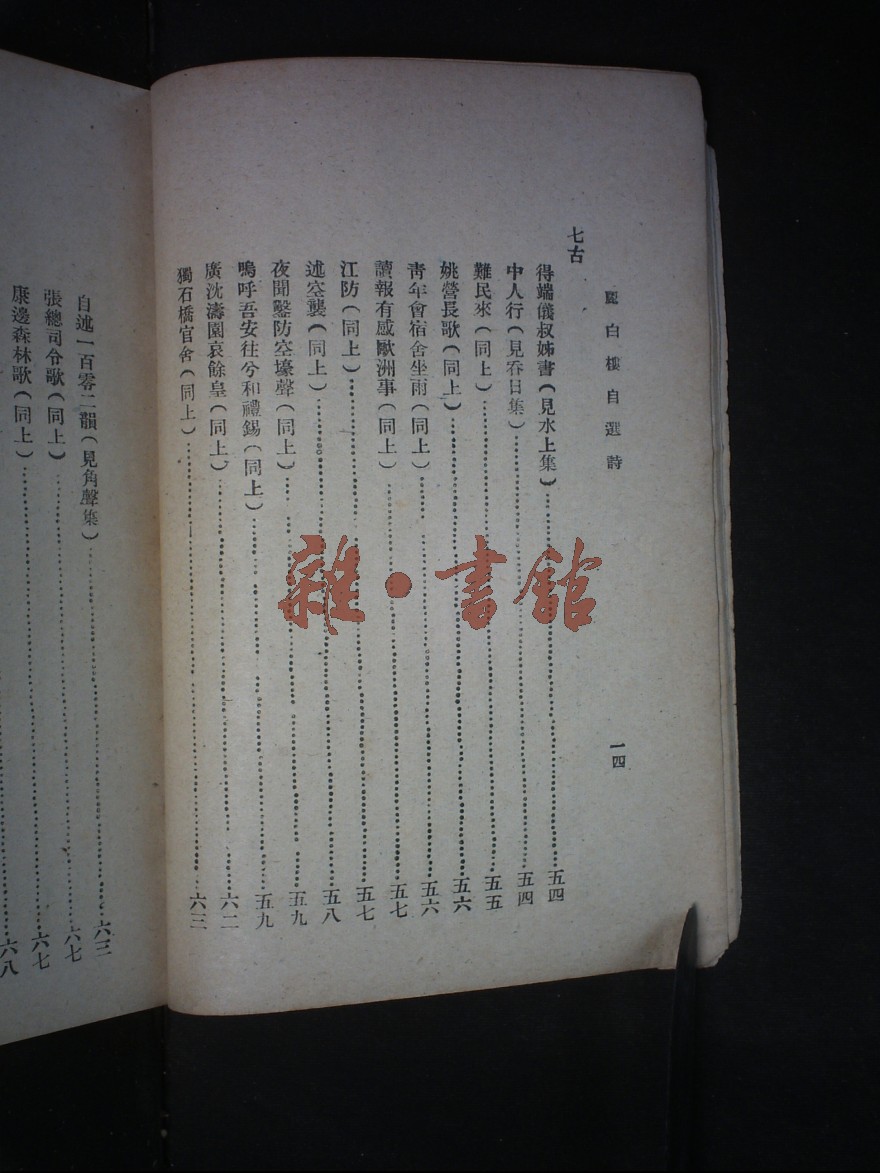 麗白樓自選詩
一四
七古
得端儀叔姊書(見水上集)……五四
中人行(見吞日集)……五四
難民來(同上)……五五
姚營長歌(同上)……五六
青年會宿舍坐雨(同上)……五六
讀報有感歐洲事(同上)……五七
江防(同上)……五七
述空襲(同上)……五八
夜聞鑿防空壕聲(同上)……五九
嗚呼吾安往兮和禮錫(同上)……五九
廣沈濤園哀餘皇(同上)……六二
獨石橋官舍(同上)……六三
自述一百零二韻(見角聲集)……六三
張總司令歌(同上)……六七
康邊森林歌(同上)……六七
六八
雜·書館